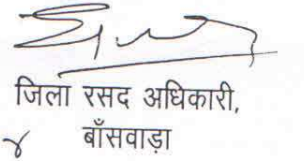 जिला रसद अधिकारी,
बाँसवाड़ा